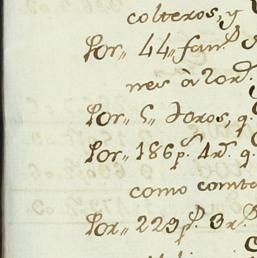 colteros, y
Por,, 44,, fan.s
nes à 2 or.s
Por,, 5,, toros, q.
Por,, 186 p.s 4 r.s q.
como consta
Por,, 229 p.s 3 r.s